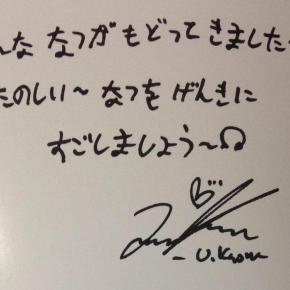 んな なつが もどって きました〜
たのしい〜 なつを げんきに
すごしましょう〜